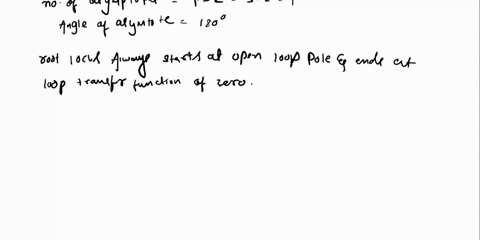 no. of asymptote =
Angle of asymptote = 180°
root locus Always starts at open loop pole & ends at
loop transfr function of zero.